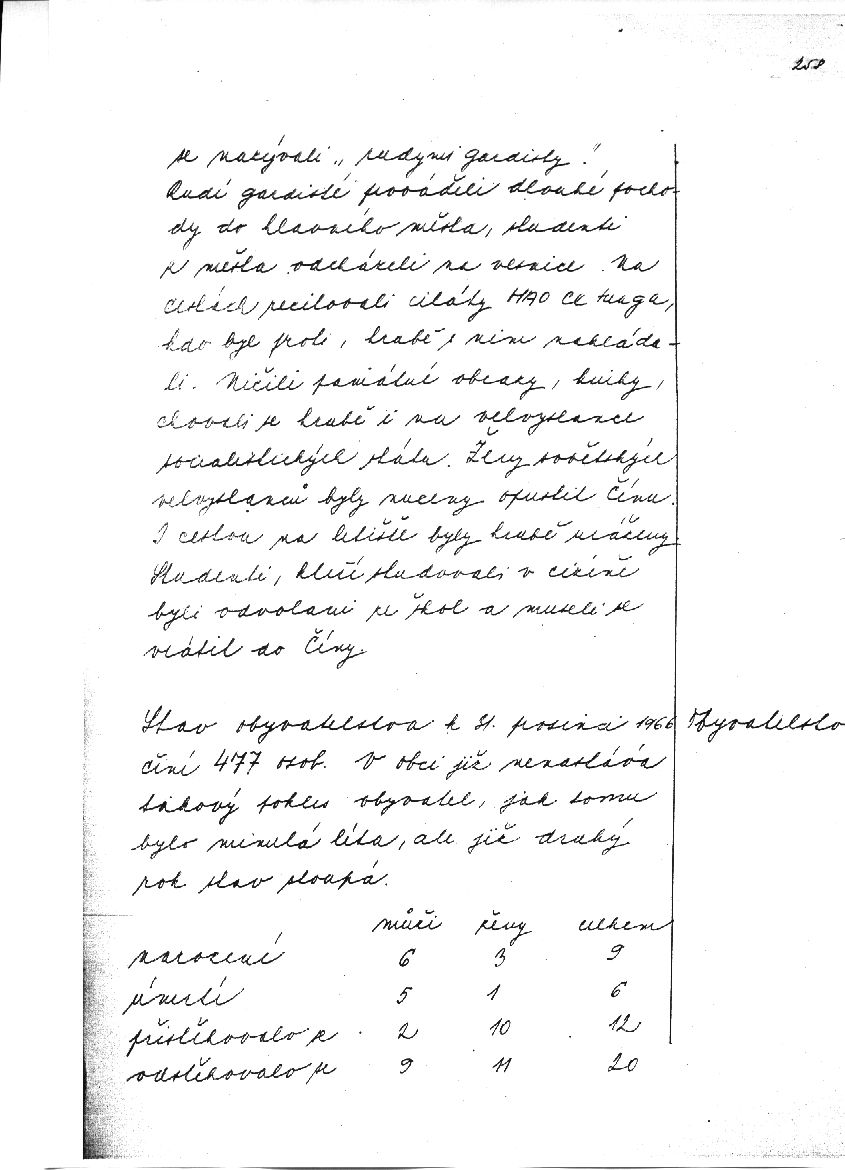 258
se nazývali „ rudými gardisty".
Rudí gardisté prováděli dlouhé pocho-
dy do hlavního města, studenti
z města odcházeli na vesnice. Na
cestách recitovali citáty MAO Ce tunga,
kdo byl proti, hrubě s ním nakláda-
li. Ničili památné obrazy, knihy,
chovali se hrubě i na velvyslance
socialistických států. Ženy sovětských
velvyslanců byly nuceny opustit Čínu.
I cestou na letiště byly hrubě uráženy.
Studenti, kteří studovali v cizině
byli odvoláni ze škol a museli se
vrátit do Číny.
Stav obyvatelstva k 31. prosinci 1966 Obyvatelstvo
činí 477 osob. V obci již nenastává
takový pokles obyvatel, jak tomu
bylo minulá léta, ale již druhý
rok stav stoupá.
muži ženy celkem
narození 6 3 9
úmrtí 5 1 6
přistěhovalo se 2 10 12
odstěhovalo se 9 11 20